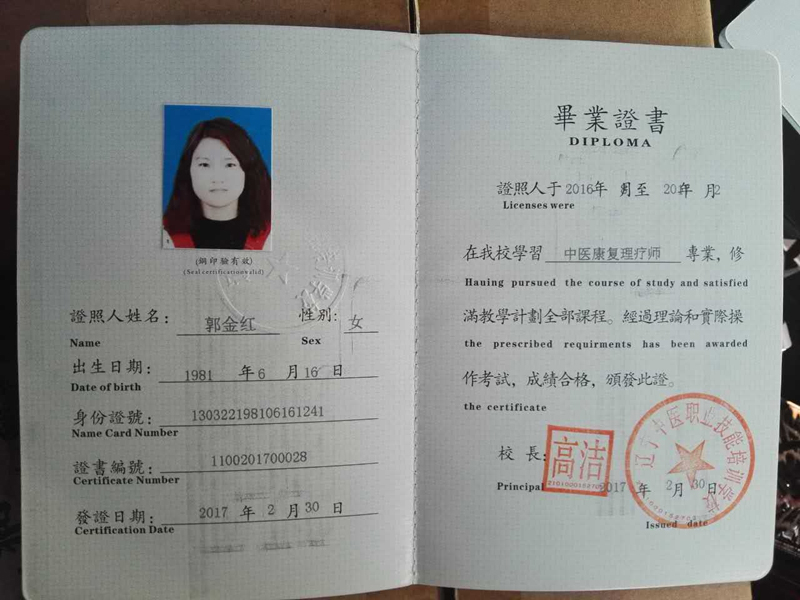 (鋼印驗有效)
(Seal certification valid)
證照人姓名: 郭金红 性别: 女
Name Sex
出生日期: 1981 年 6 月 16 日
Date of birth
身份證號: 130322198106161241
Name Card Number
證書編號: 1100201700028
Certificate Number
發證日期: 2017 年 2 月 30 日
Certification Date
畢業證書
DIPLOMA
證照人于 2016年 月至 20 年 月2
Licenses were
在我校學習 中医康复理疗师 專業,修
Hauing pursued the course of study and satisfied
滿教學計劃全部課程。經過理論和實際操
the prescribed requirments has been awarded
作考試,成績合格,頒發此證。
the certificate
校長:
高洁
Principal 2017 年 2 月 30 日
Issued date
辽宁中医职业技能培训学校